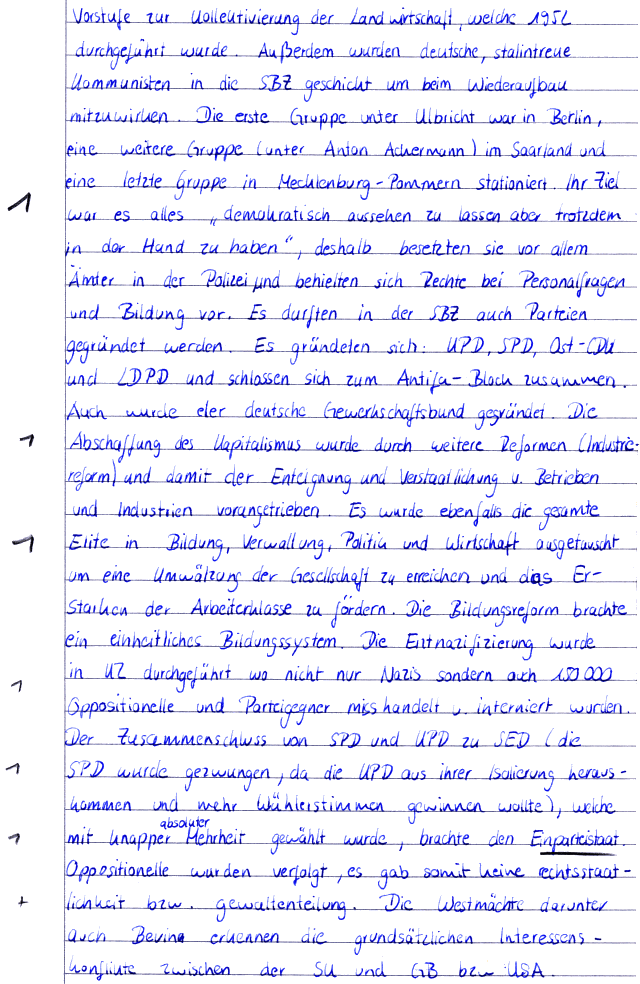 Vorstufe zur Kollektivierung der Landwirtschaft, welche 1952
durchgeführt wurde. Außerdem wurden deutsche, stalintreue
Kommunisten in die SBZ geschickt um beim Wiederaufbau
mitzuwirken. Die erste Gruppe unter Ulbricht war in Berlin,
eine weitere Gruppe (unter Anton Ackermann) im Saarland und
eine letzte Gruppe in Mecklenburg-Pommern stationiert. Ihr Ziel
1 war es alles „demokratisch aussehen zu lassen aber trotzdem
in der Hand zu haben“, deshalb besetzten sie vor allem
Ämter in der Polizei und behielten sich Rechte bei Personalfragen
und Bildung vor. Es durften in der SBZ auch Parteien
gegründet werden. Es gründeten sich: KPD, SPD, Ost-CDU
und LDPD und schlossen sich zum Antifa-Block zusammen.
Auch wurde der deutsche Gewerkschaftsbund gegründet. Die
1 Abschaffung des Kapitalismus wurde durch weitere Reformen (Industrie-
reform) und damit der Enteignung und Verstaatlichung v. Betrieben
und Industrien vorangetrieben. Es wurde ebenfalls die gesamte
1 Elite in Bildung, Verwaltung, Politik und Wirtschaft ausgetauscht
um eine Umwälzung der Gesellschaft zu erreichen und das Er-
starken der Arbeiterklasse zu fördern. Die Bildungsreform brachte
ein einheitliches Bildungssystem. Die Entnazifizierung wurde
in KZ durchgeführt wo nicht nur Nazis sondern auch 150 000
1 Oppositionelle und Parteigegner misshandelt u. interniert wurden.
Der Zusammenschluss von SPD und KPD zu SED (die
1 SPD wurde gezwungen, da die KPD aus ihrer Isolierung heraus-
kommen und mehr Wählerstimmen gewinnen wollte), welche
1 mit knapper absoluter Mehrheit gewählt wurde, brachte den Einparteistaat.
Oppositionelle wurden verfolgt, es gab somit keine rechtsstaat-
+ lichkeit bzw. gewaltenteilung. Die Westmächte darunter
auch Bevin erkennen die grundsätzlichen Interessens-
konflikte zwischen der SU und GB bzw. USA.